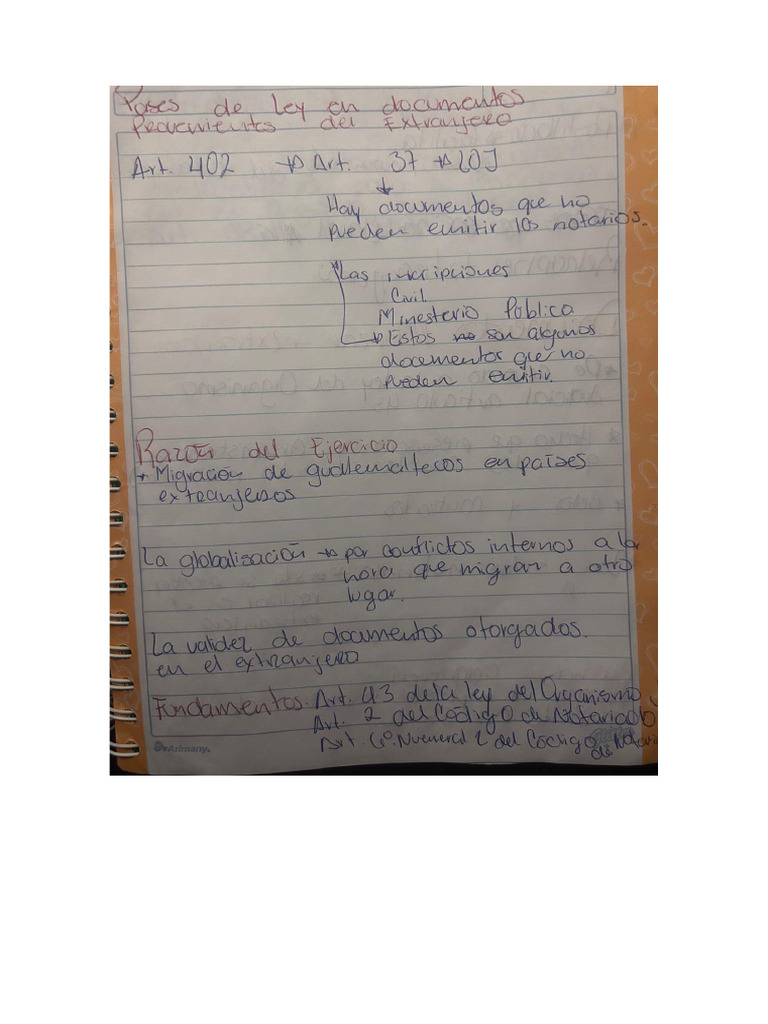 Pases de Ley en documentos
Provenientes del Extranjero
Art. 402 → Art. 37 → LOJ
↓
Hay documentos que no
pueden emitir los notarios.
Las inscripciones
Civil.
Ministerio Público
→ Estos no son algunos
documentos que no
pueden emitir.
Razón del Ejercicio
* Migración de guatemaltecos en países
extranjeros
La globalización → por conflictos internos a la
hora que migrar a otro
lugar.
La validez de documentos otorgados.
en el extranjero
Fundamentos. Art. 43 de la ley del Organismo
Art. 2 del Código de Notariado
Art. 6º. Numeral 2 del Código
de Notari